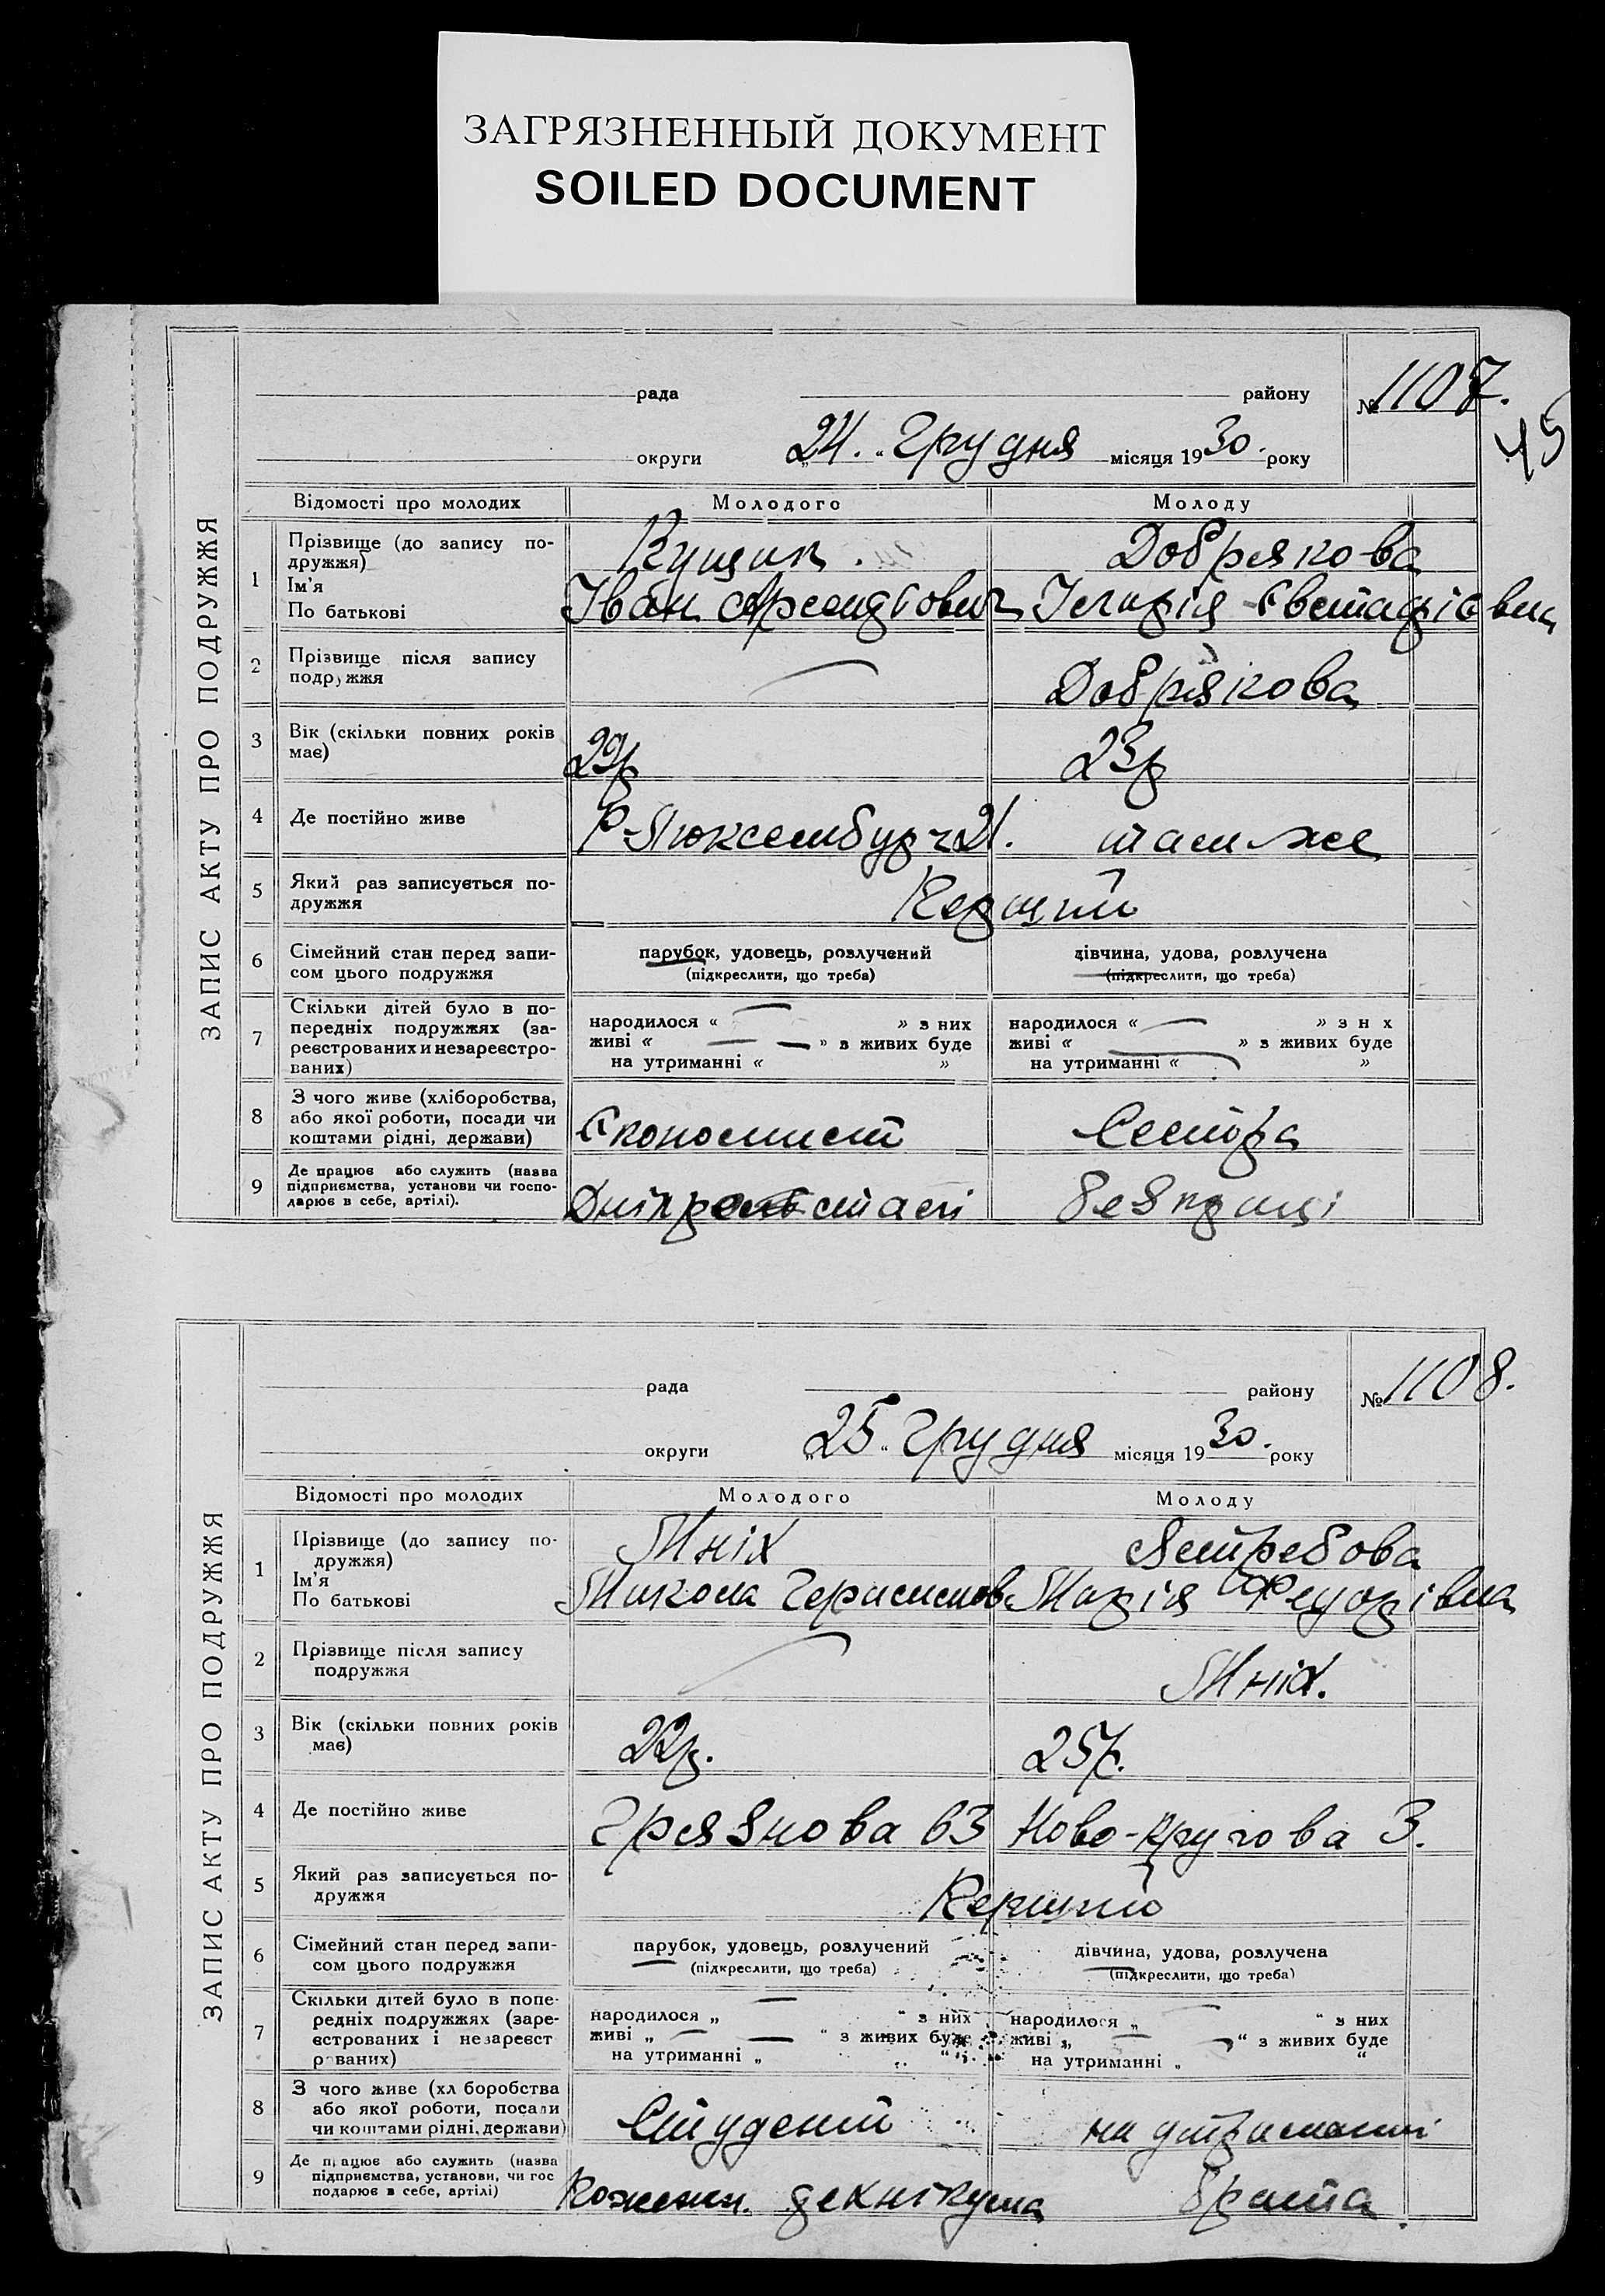 ЗАГРЯЗНЕННЫЙ ДОКУМЕНТ
SOILED DOCUMENT
ЗАПИС АКТУ ПРО ПОДРУЖЖЯ
рада району № 1107.
45
округи „24.“ Грудня місяця 1930. року
Відомості про молодих Молодого Молоду
1 Прізвище (до запису по-
дружжя) Кущин. Добрякова
Ім'я
По батькові Іван Євстафіевна
2 Прізвище після запису
подружжя Добрякова
3 Вік (скільки повних років
має) 29р 23р
4 Де постійно живе Р-Люксембург 21. там же
5 Який раз записується по-
дружжя Перший
6 Сімейний стан перед запи-
сом цього подружжя
парубок, удовець, розлучений дівчина, удова, розлучена
(підкреслити, що треба) (підкреслити, що треба)
7 Скільки дітей було в по-
передніх подружжях (за-
реєстрованих и незареєстро-
ваних)
народилося « » з них народилося « » з н х
живі « » з живих буде живі « » з живих буде
на утриманні « » на утриманні « »
8 З чого живе (хліборобства,
або якої роботи, посади чи
коштами рідні, держави) Економист Сестра
9 Де працює або служить (назва
підприємства, установи чи госпо-
дарює в себе, артілі). сталі
ЗАПИС АКТУ ПРО ПОДРУЖЖЯ
рада району № 1108.
округи „25“ Грудня місяця 1930. року
Відомості про молодих Молодого Молоду
1 Прізвище (до запису по-
дружжя) Мніх Ястребова
Ім'я
По батькові Микола Герасимов Марія Федорівна
2 Прізвище після запису
подружжя Мніх.
3 Вік (скільки повних років
має) 22р. 25р.
4 Де постійно живе Грязнова 63 Ново-Кругова 3.
5 Який раз записується по-
дружжя Перший
6 Сімейний стан перед запи-
сом цього подружжя
парубок, удовець, розлучений дівчина, удова, розлучена
(підкреслити, що треба) (підкреслити, що треба)
7 Скільки дітей було в попе-
редніх подружжях (заре-
єстрованих і незареєст
рованих)
народилося „ “ з них народилося „ “ з них
живі „ “ з живих буде живі „ “ з живих буде
на утриманні „ “ на утриманні „ “
8 З чого живе (хл боробства
або якої роботи, посади
чи коштами рідні, держави) Студент на утриманні
9 Де працює або служить (назва
підприємства, установи, чи гос
подарює в себе, артілі) Кожевн. технікума брата